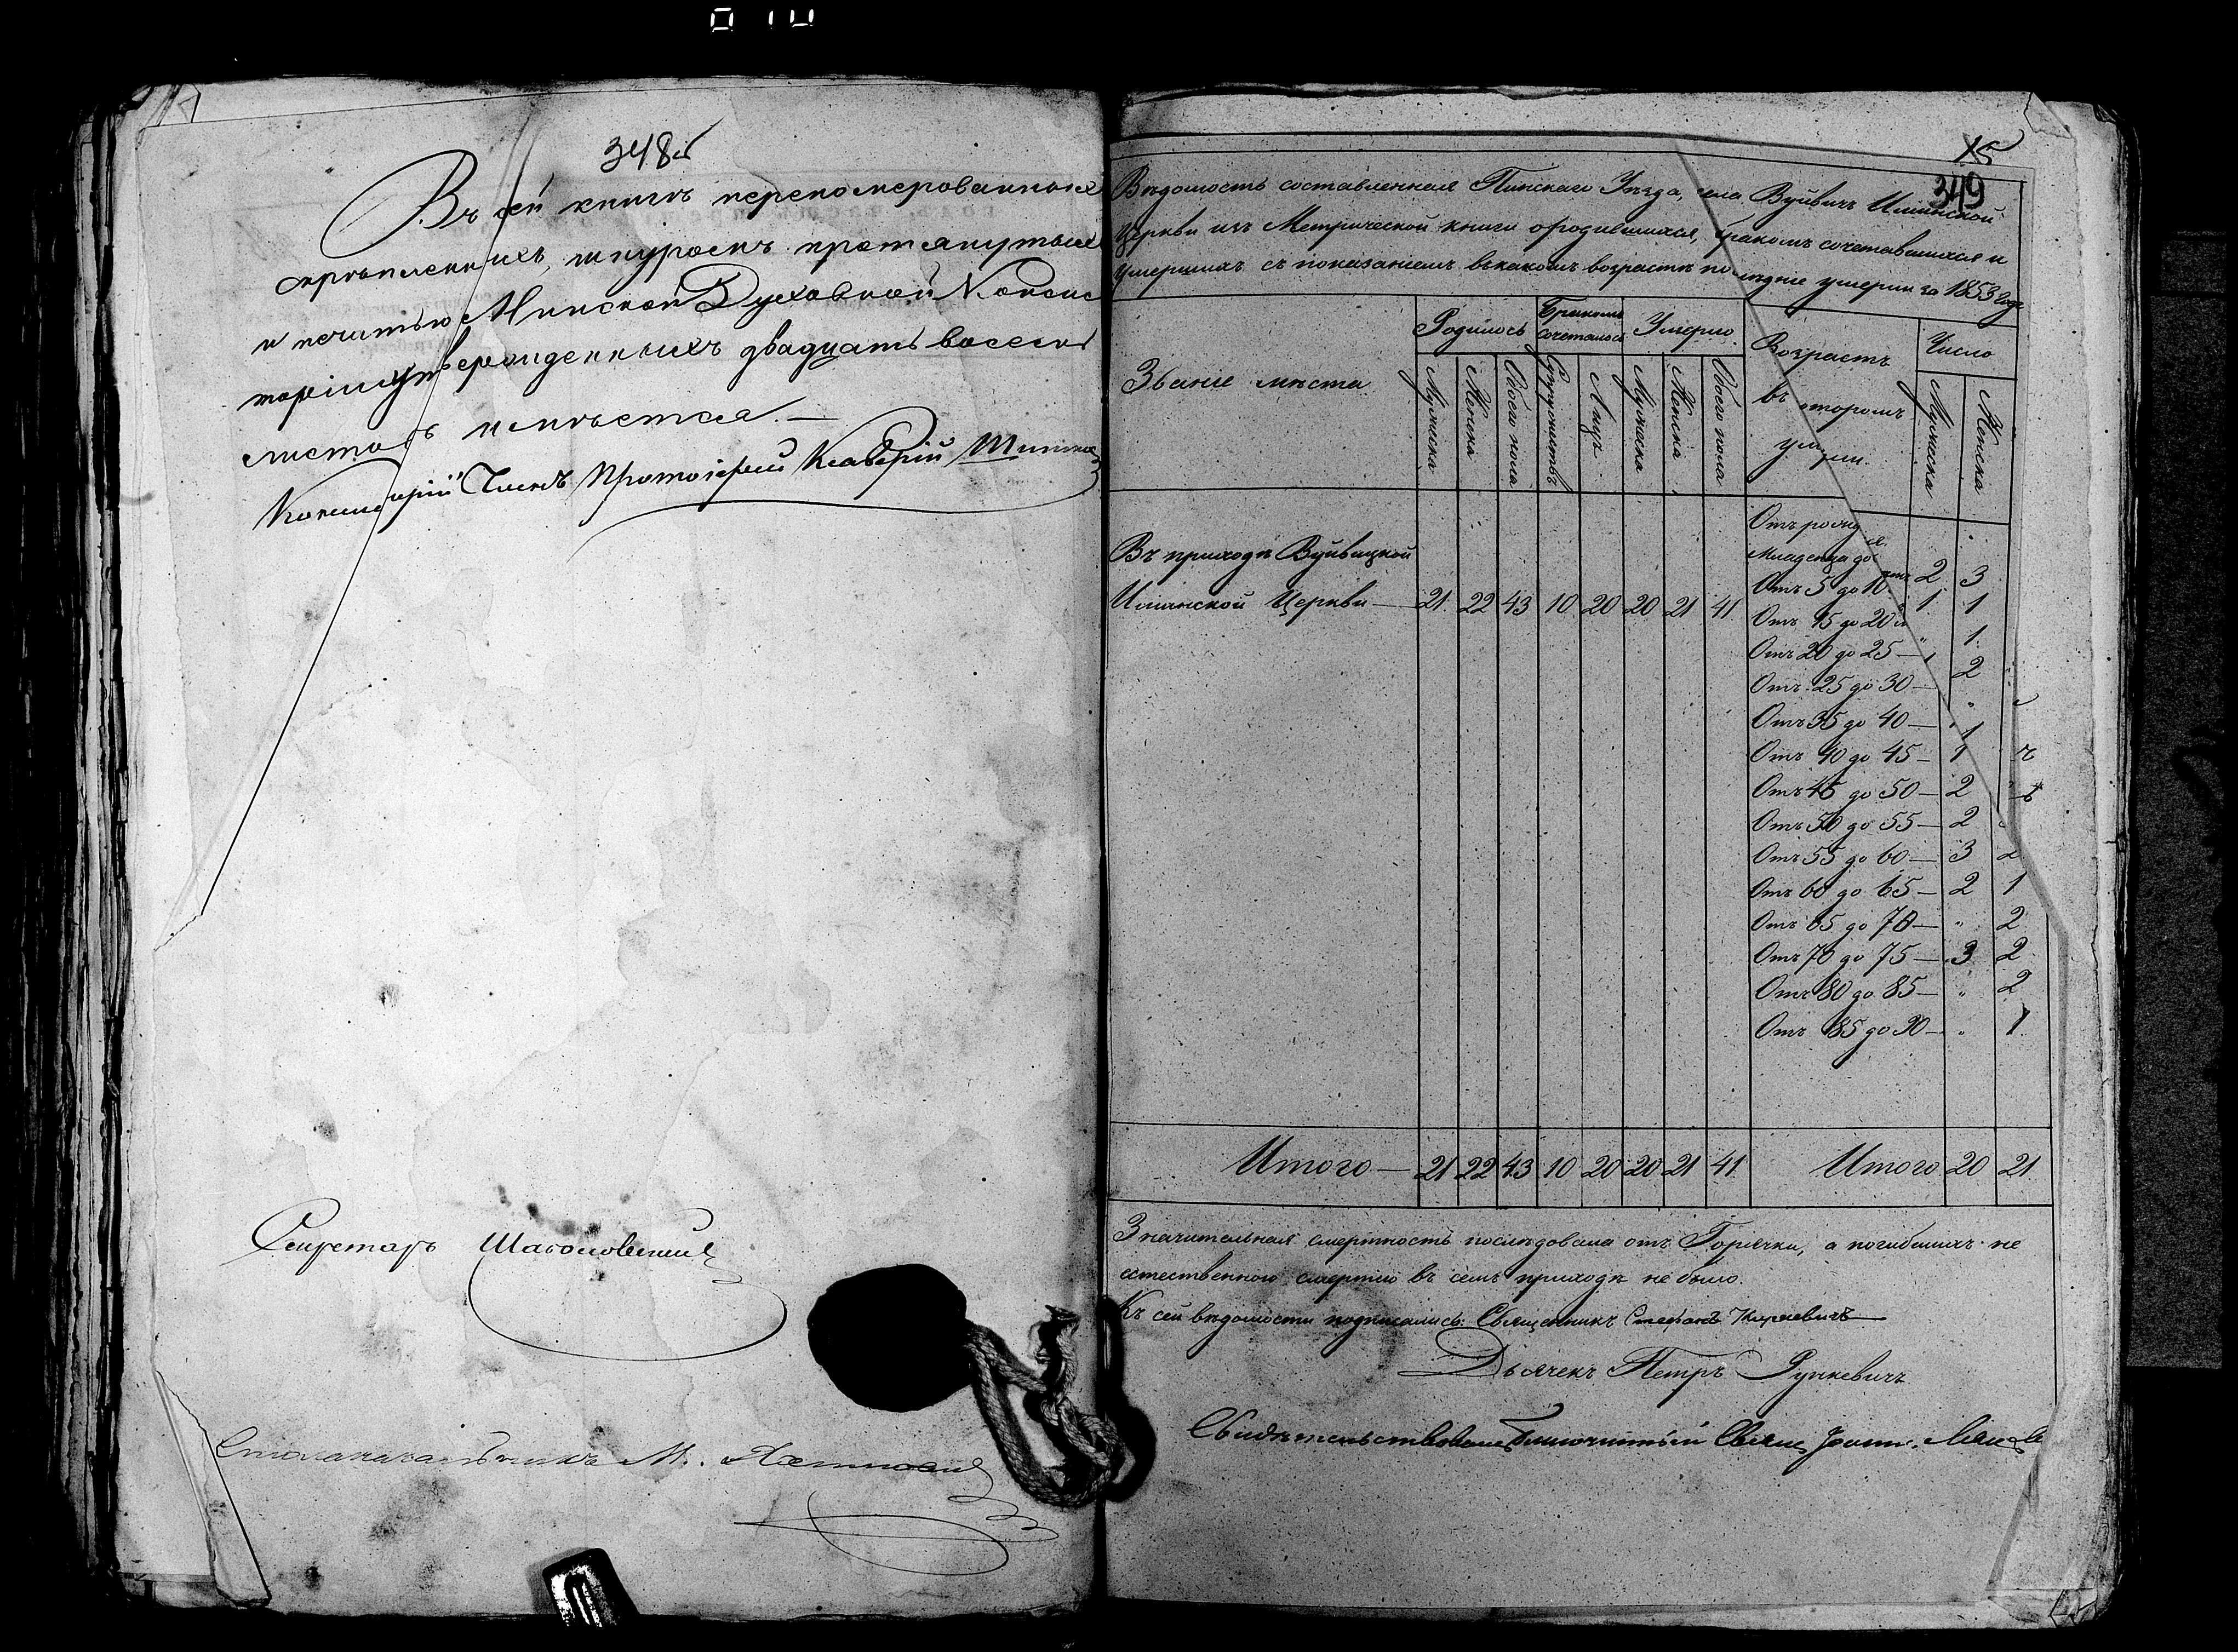 348об
Въ сей книгѣ перенумерованныхъ
скрѣпленныхъ, шнуромъ протянутыхъ
и печатью Минской Духовной Консис
торіи утвержденныхъ двадцать восемь
листовъ имѣется.—
Консисторіи Членъ Протоіерей Ксаверій
Секретарь
Столоначальникъ М.
15
349
Вѣдомость составленная Пинскаго Уѣзда, села Вуйвичъ Ильинской
Церкви изъ Метрической книги о родившихся, бракомъ сочетавшихся и
умершихъ съ показаніемъ въ какомъ возрастѣ послѣдніе умерли за 1853 годъ
Званіе мѣста
Родилось
Бракомъ сочеталось
Умерло
Возрастъ въ которомъ умерли.
Число
Мужеска
Женска
Обоего пола
Супружествъ
Лицъ
Мужеска
Женска
Обоего пола
Мужеска
Женска
Въ приходѣ Вуйвицкой
Ильинской Церкви — 21 22 43 10 20 20 21 41
Отъ рожд
Младенца до 2 3
Отъ 5 до 10 1 1
Отъ 15 до 20 " 1
Отъ 20 до 25 — 2
Отъ 25 до 30 —
Отъ 35 до 40 — 1
Отъ 40 до 45 — 1
Отъ 45 до 50 — 2
Отъ 50 до 55 — 2
Отъ 55 до 60 — 3 2
Отъ 60 до 65 — 2 1
Отъ 65 до 70 — " 2
Отъ 70 до 75 — 3 2
Отъ 80 до 85 — " 2
Отъ 85 до 90 — " 1
Итого — 21 22 43 10 20 20 21 41 Итого 20 21
Значительная смертность послѣдовала отъ Горячки, а погибшихъ не
естественною смертію въ семъ приходѣ не было.
Къ сей вѣдомости подписались: Священникъ Стефанъ
Дьячекъ Петръ Ручкевичъ
Свидѣтельствовалъ Благочинный Свящ. Іоаннъ